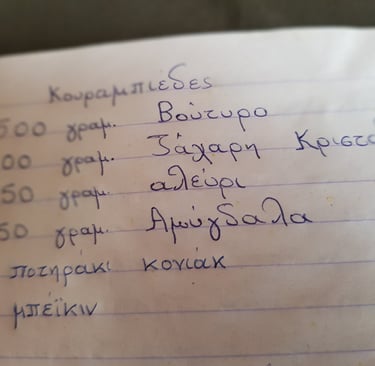 Κουραμπιέδες
500 γραμ. Βούτυρο
00 γραμ. Ζάχαρη Κριστά
50 γραμ. αλεύρι
50 γραμ. Αμύγδαλα
ποτηράκι κονιάκ
μπέϊκιν